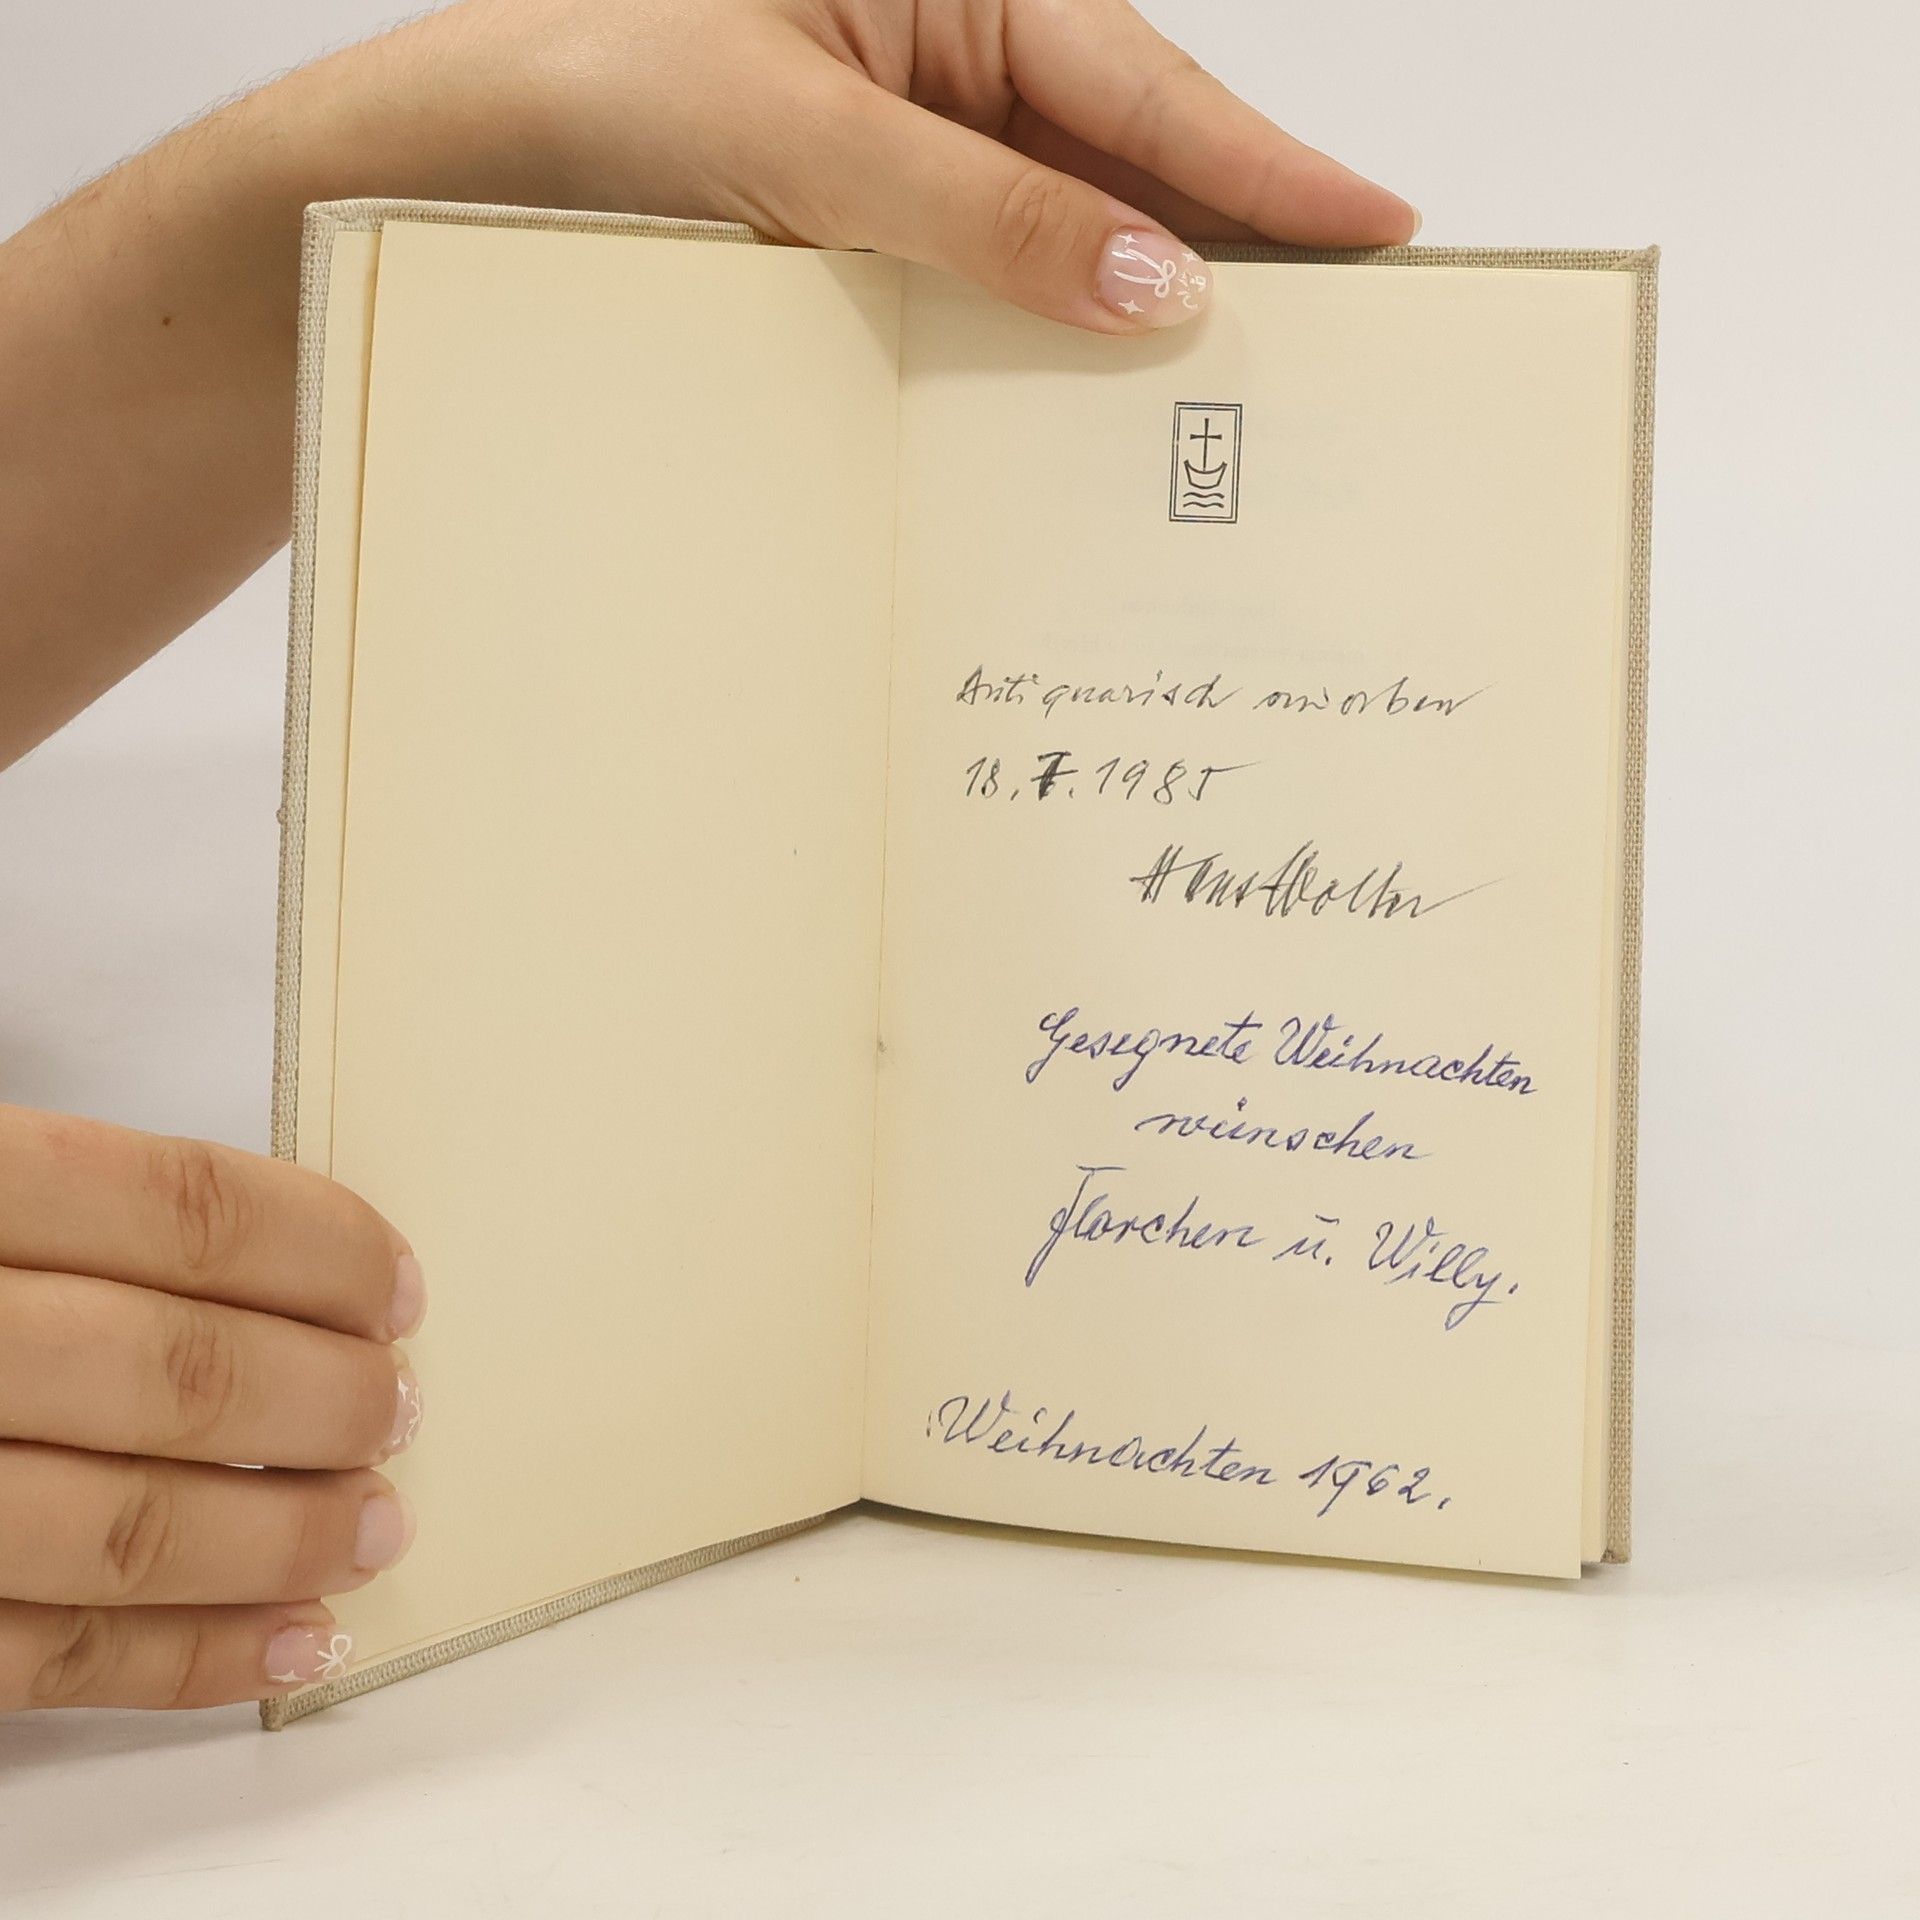 Antiquarisch erworben
18. 7. 1985
Hans Wolter
Gesegnete Weihnachten
wünschen
Florchen u. Willy.
Weihnachten 1962.